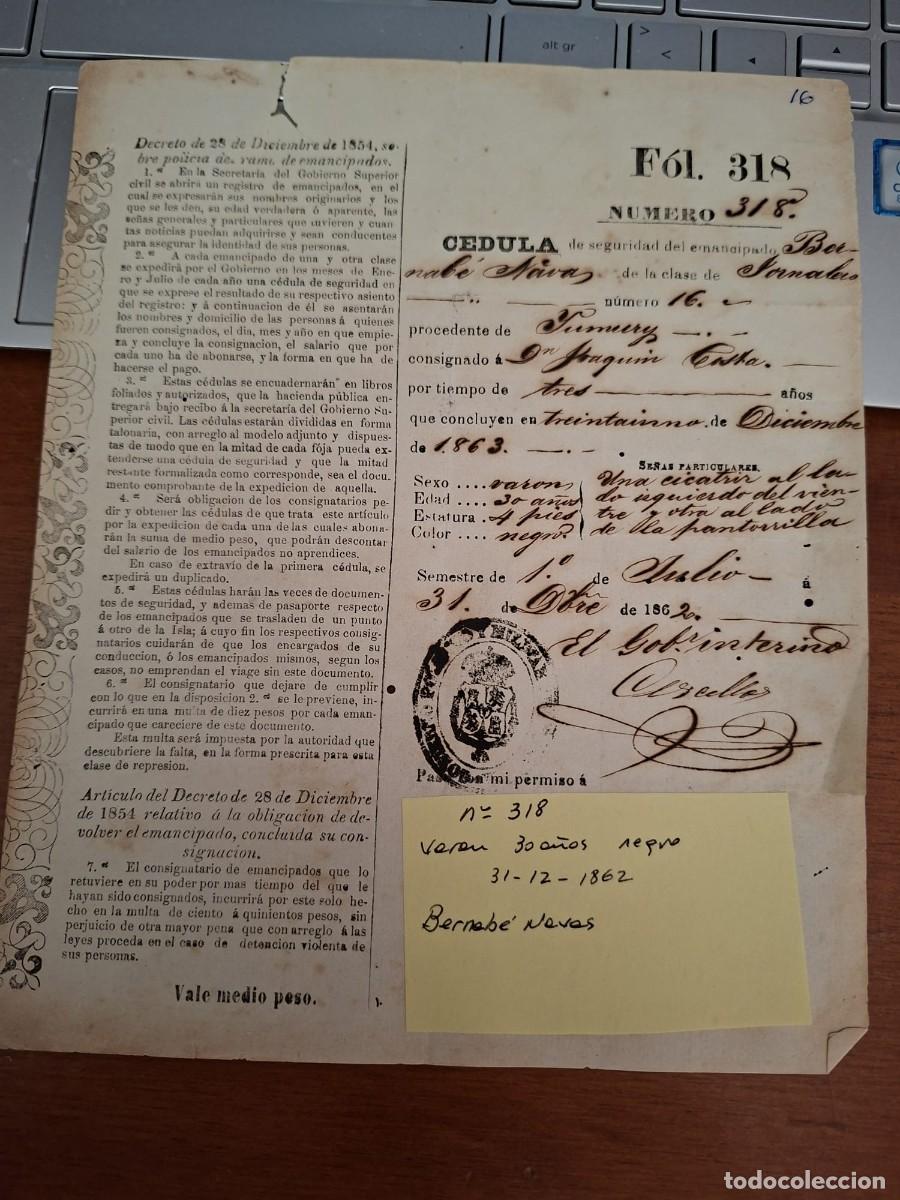 alt gr
16
Decreto de 28 de Diciembre de 1854, so-
bre policia del ramo de emancipados.
1.ª En la Secretaría del Gobierno Superior
civil se abrirá un registro de emancipados, en el
cual se expresarán sus nombres originarios y los
que se les den, su edad verdadera ó aparente, las
señas generales y particulares que tuvieren y cuan
tas noticias puedan adquirirse y sean conducentes
para asegurar la identidad de sus personas.
2.ª A cada emancipado de una y otra clase
se expedirá por el Gobierno en los meses de Ene-
ro y Julio de cada año una cédula de seguridad en
que se exprese el resultado de su respectivo asiento
del registro: y á continuacion de él se asentarán
los nombres y domicilio de las personas á quienes
fueren consignados, el dia, mes y año en que empie-
za y concluye la consignacion, el salario que por
cada uno ha de abonarse, y la forma en que ha de
hacerse el pago.
3.ª Estas cédulas se encuadernarán en libros
foliados y autorizados, que la hacienda pública en-
tregará bajo recibo á la secretaría del Gobierno Su-
perior civil. Las cédulas estarán divididas en forma
talonaria, con arreglo al modelo adjunto y dispues-
tas de modo que en la mitad de cada fója pueda ex-
tenderse una cédula de seguridad y que la mitad
restante formalizada como corresponde, sea el docu-
mento comprobante de la expedicion de aquella.
4.ª Será obligacion de los consignatarios pe-
dir y obtener las cédulas de que trata este artículo
por la expedicion de cada una de las cuales abona-
rán la suma de medio peso, que podrán descontar
del salario de los emancipados no aprendices.
En caso de extravío de la primera cédula, se
expedirá un duplicado.
5.ª Estas cédulas harán las veces de documen-
tos de seguridad, y ademas de pasaporte respecto
de los emancipados que se trasladen de un punto
á otro de la Isla; á cuyo fin los respectivos consig-
natarios cuidarán de que los encargados de su
conduccion, ó los emancipados mismos, segun los
casos, no emprendan el viage sin este documento.
6.ª El consignatario que dejare de cumplir
con lo que en la disposicion 2.ª se le previene, in-
currirá en una multa de diez pesos por cada eman-
cipado que careciere de este documento.
Esta multa será impuesta por la autoridad que
descubriere la falta, en la forma prescrita para esta
clase de represion.
Artículo del Decreto de 28 de Diciembre
de 1854 relativo á la obligacion de de-
volver el emancipado, concluida su con-
signacion.
7.ª El consignatario de emancipados que lo
retuviere en su poder por mas tiempo del que le
hayan sido consignados, incurrirá por este solo he-
cho en la multa de ciento á quinientos pesos, sin
perjuicio de otra mayor pena que con arreglo á las
leyes proceda en el caso de detencion violenta de
sus personas.
Vale medio peso.
Fól. 318
NUMERO 318.
CEDULA de seguridad del emancipado Ber-
nabé Navas de la clase de Jornalero
número 16.
procedente de
consignado á Dn Joaquin Costa.
por tiempo de tres años
que concluyen en treintaiuno de Diciembre
de 1863
SEÑAS PARTICULARES.
Sexo .... varon
Edad .... 30 años
Estatura . 4 pies
Color .... negro
Una cicatriz al la-
do izquierdo del vien-
tre y otra al lado
de la pantorrilla
Semestre de 1.º de Julio á
31. de Dbre de 1862.
El Gobr. interino
POLITICO Y MILITAR
Pase con mi permiso á
nº 318
Varon 30 años negro
31-12-1862
Bernabé Navas
todocoleccion